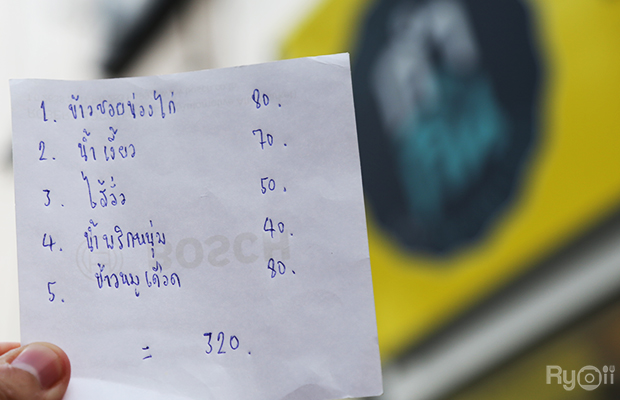 1. ข้าวซอยน่องไก่ 80.
2. น้ำเงี้ยว 70.
3. ไส้อั่ว 50.
4. น้ำพริกหนุ่ม 40.
BOSCH
5. ข้าวหมูเดือด 80.
= 320.
Ryoii